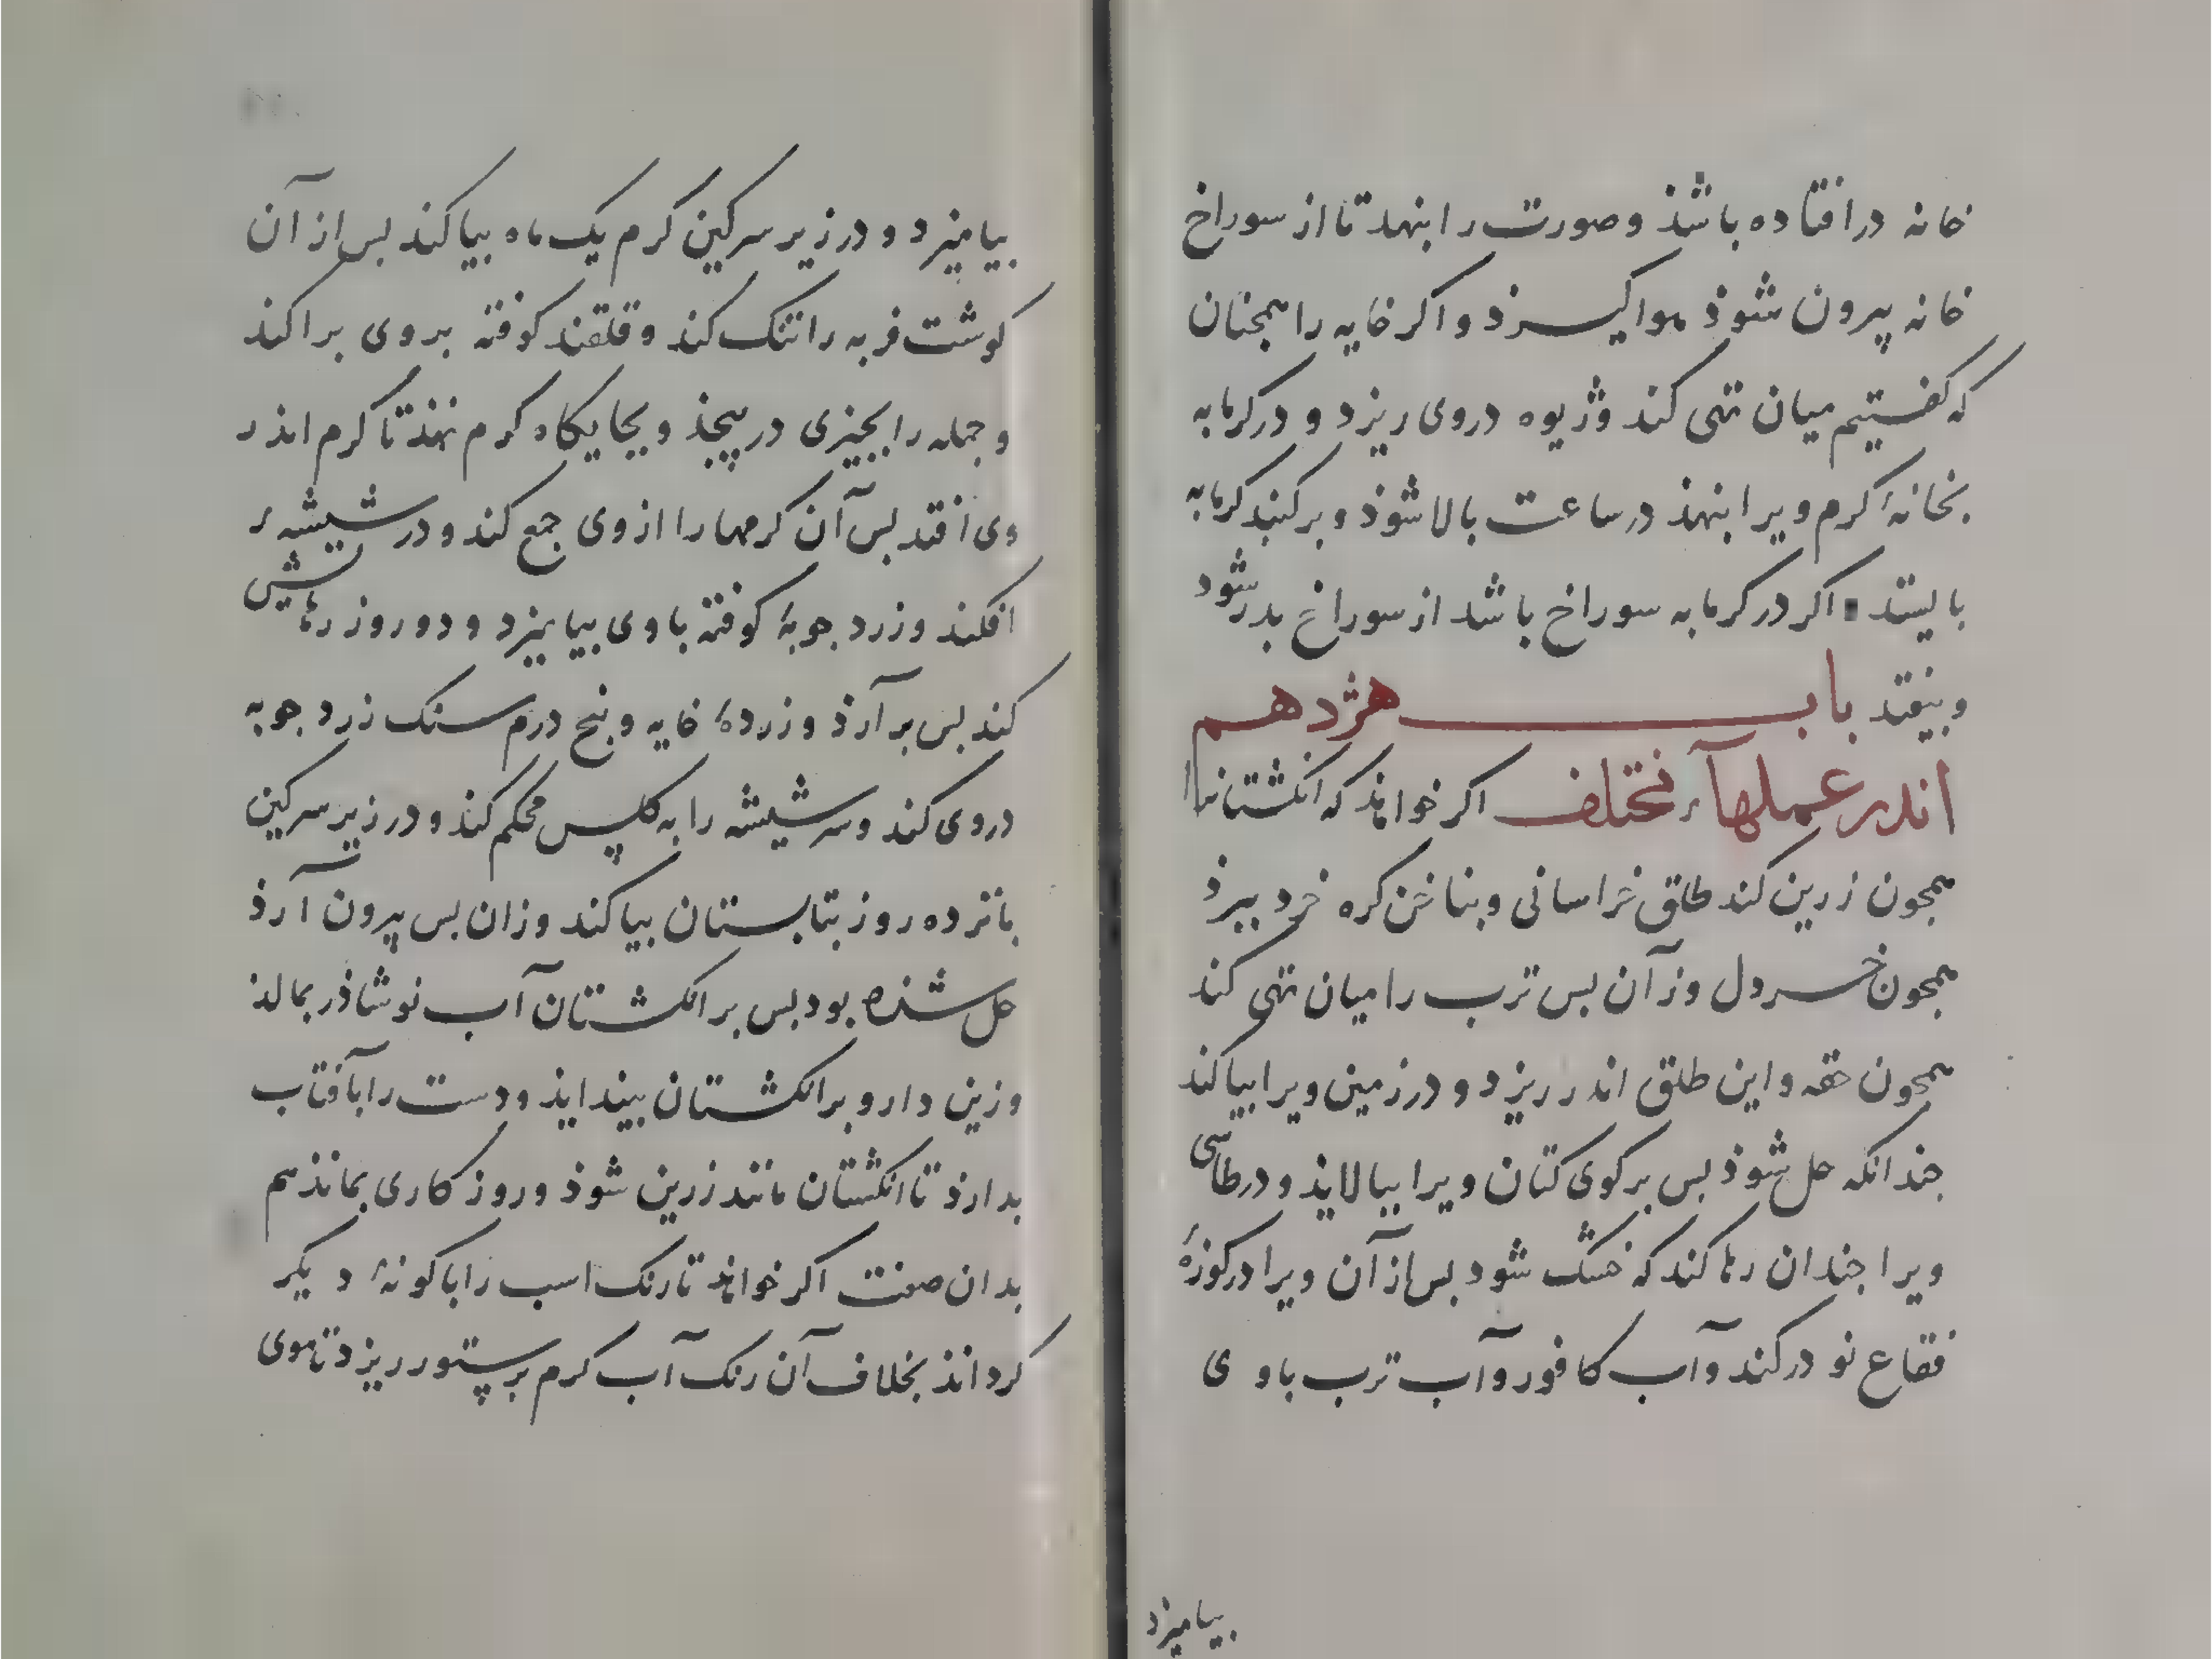 خانه درافتاده باشذ و صورت را بنهد تا از سوراخ
خانه پیرون شوذ هوا کیرذ و اکر خایه را همجنان
که کفتیم میان تهی کند و ژیوه دروی ریزد و در کرمابه
بخانهٔ کرم ویرا بنهذ در ساعت بالا شوذ و بر کنبد کرمابه
بایستد اکر در کرمابه سوراخ باشد از سوراخ بدر شود
و بیفتد باب هژدهم
اندر عملهاء مختلف اکر خواهذ که انکشتانرا
همجون زرین کند طلق خراسانی و بناخن کره خرد ببرذ
همجون خردل وز آن بس ترب را میان تهی کند
همجون حقه و این طلق اندر ریزد و در زمین ویرا بیاکند
جندانکه حل شوذ بس برکوی کتان ویرا بیالایذ و در طاسی
ویرا جندان رها کند که خشک شود بس از آن ویرا در کوزهٔ
فقاع نو درکند و آب کافور و آب ترب باوی
بیامیزد
بیامیزد و در زیر سرکین کرم یک ماه بیاکند بس از آن
کوشت فربه را تنک کند و قلقند کوفته بروی براکند
و جمله را بجیزی در پیجذ و بجایکاه کرم نهذ تا کرم اندر
وی افتد بس آن کرمها را از وی جمع کند و در شیشهٔ
افکند و زرد جوبهٔ کوفته باوی بیامیزد و دو روز رهاش
کند بس برآرذ و زردهٔ خایه و بنج درم سنک زرد جوبه
دروی کند و سر شیشه را به کلس محکم کند و در زیر سرکین
بانزده روز بتابستان بیاکند وزان بس پیرون آرذ
حل شذه بود بس بر انکشتان آب نوشاذر بمالذ
وزین دارو بر انکشتان بیندایذ و دست را بآفتاب
بدارذ تا انکشتان مانند زرین شوذ و روزکاری بمانذ هم
بدان صفت اکر خواهذ تا رنک اسب را باکونهٔ دیکر
کرداند بخلاف آن رنک آب کرم بر ستور ریزد تا موی